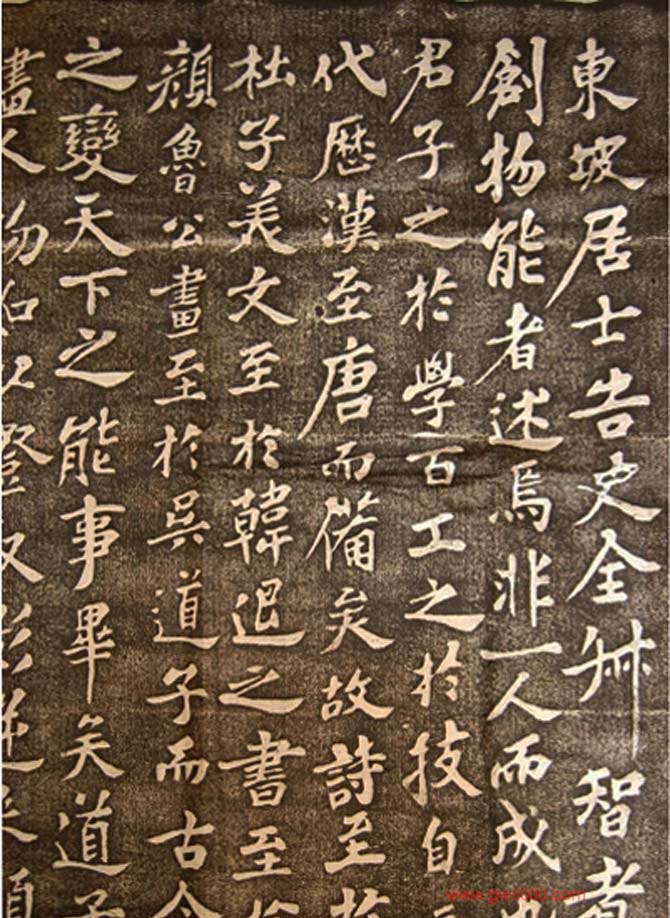 東坡居士告史全叔智者
創物能者述焉非一人而成
君子之於學百工之於技自
代歷漢至唐而備矣故詩至於
杜子美文至於韓退之書至於
顏魯公畫至於吳道子而古今
之變天下之能事畢矣道子
畫人物如以燈取影逆來順